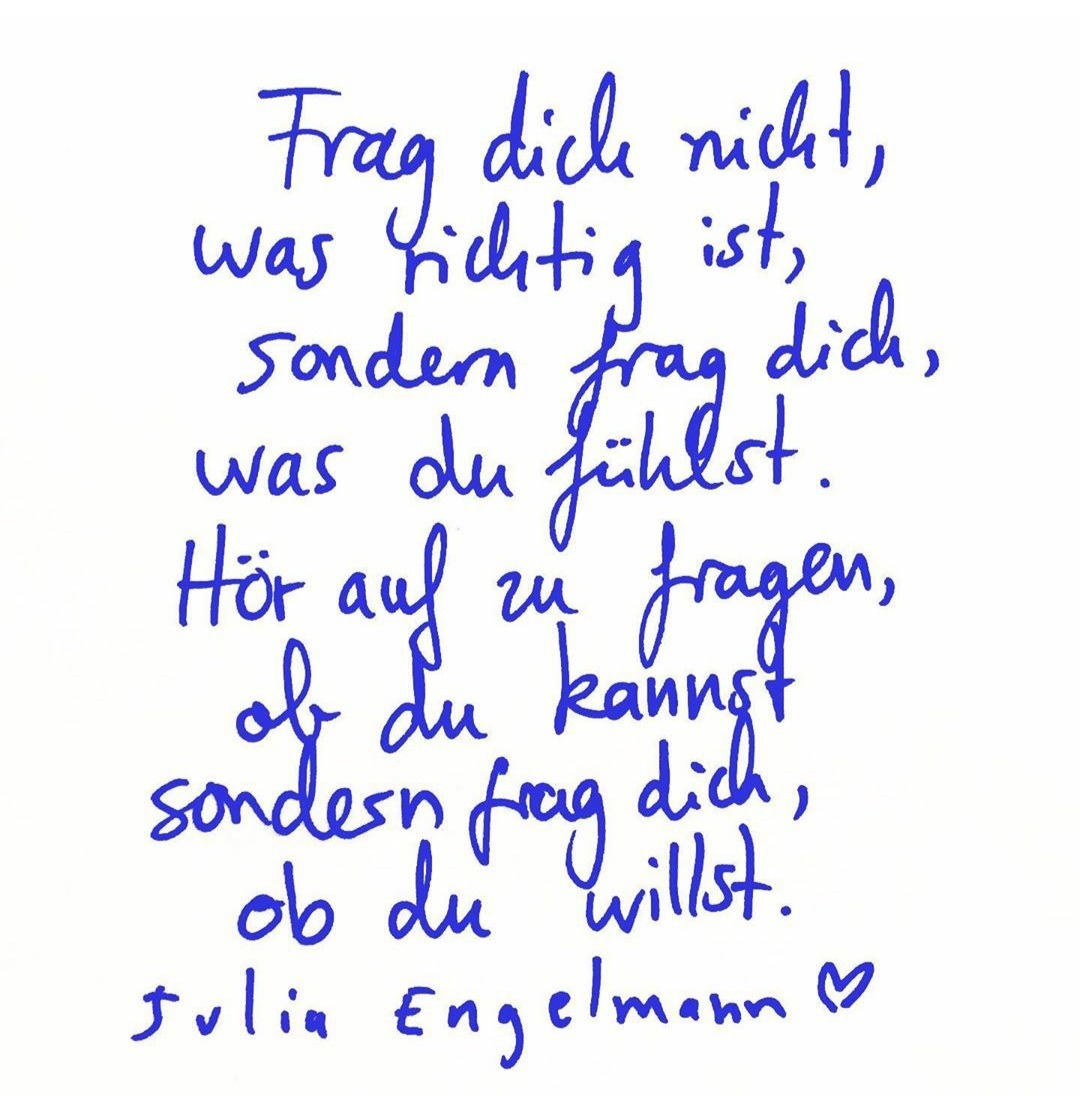 Frag dich nicht,
was richtig ist,
sondern frag dich,
was du fühlst.
Hör auf zu fragen,
ob du kannst
sondern frag dich,
ob du willst.
Julia Engelmann ♡